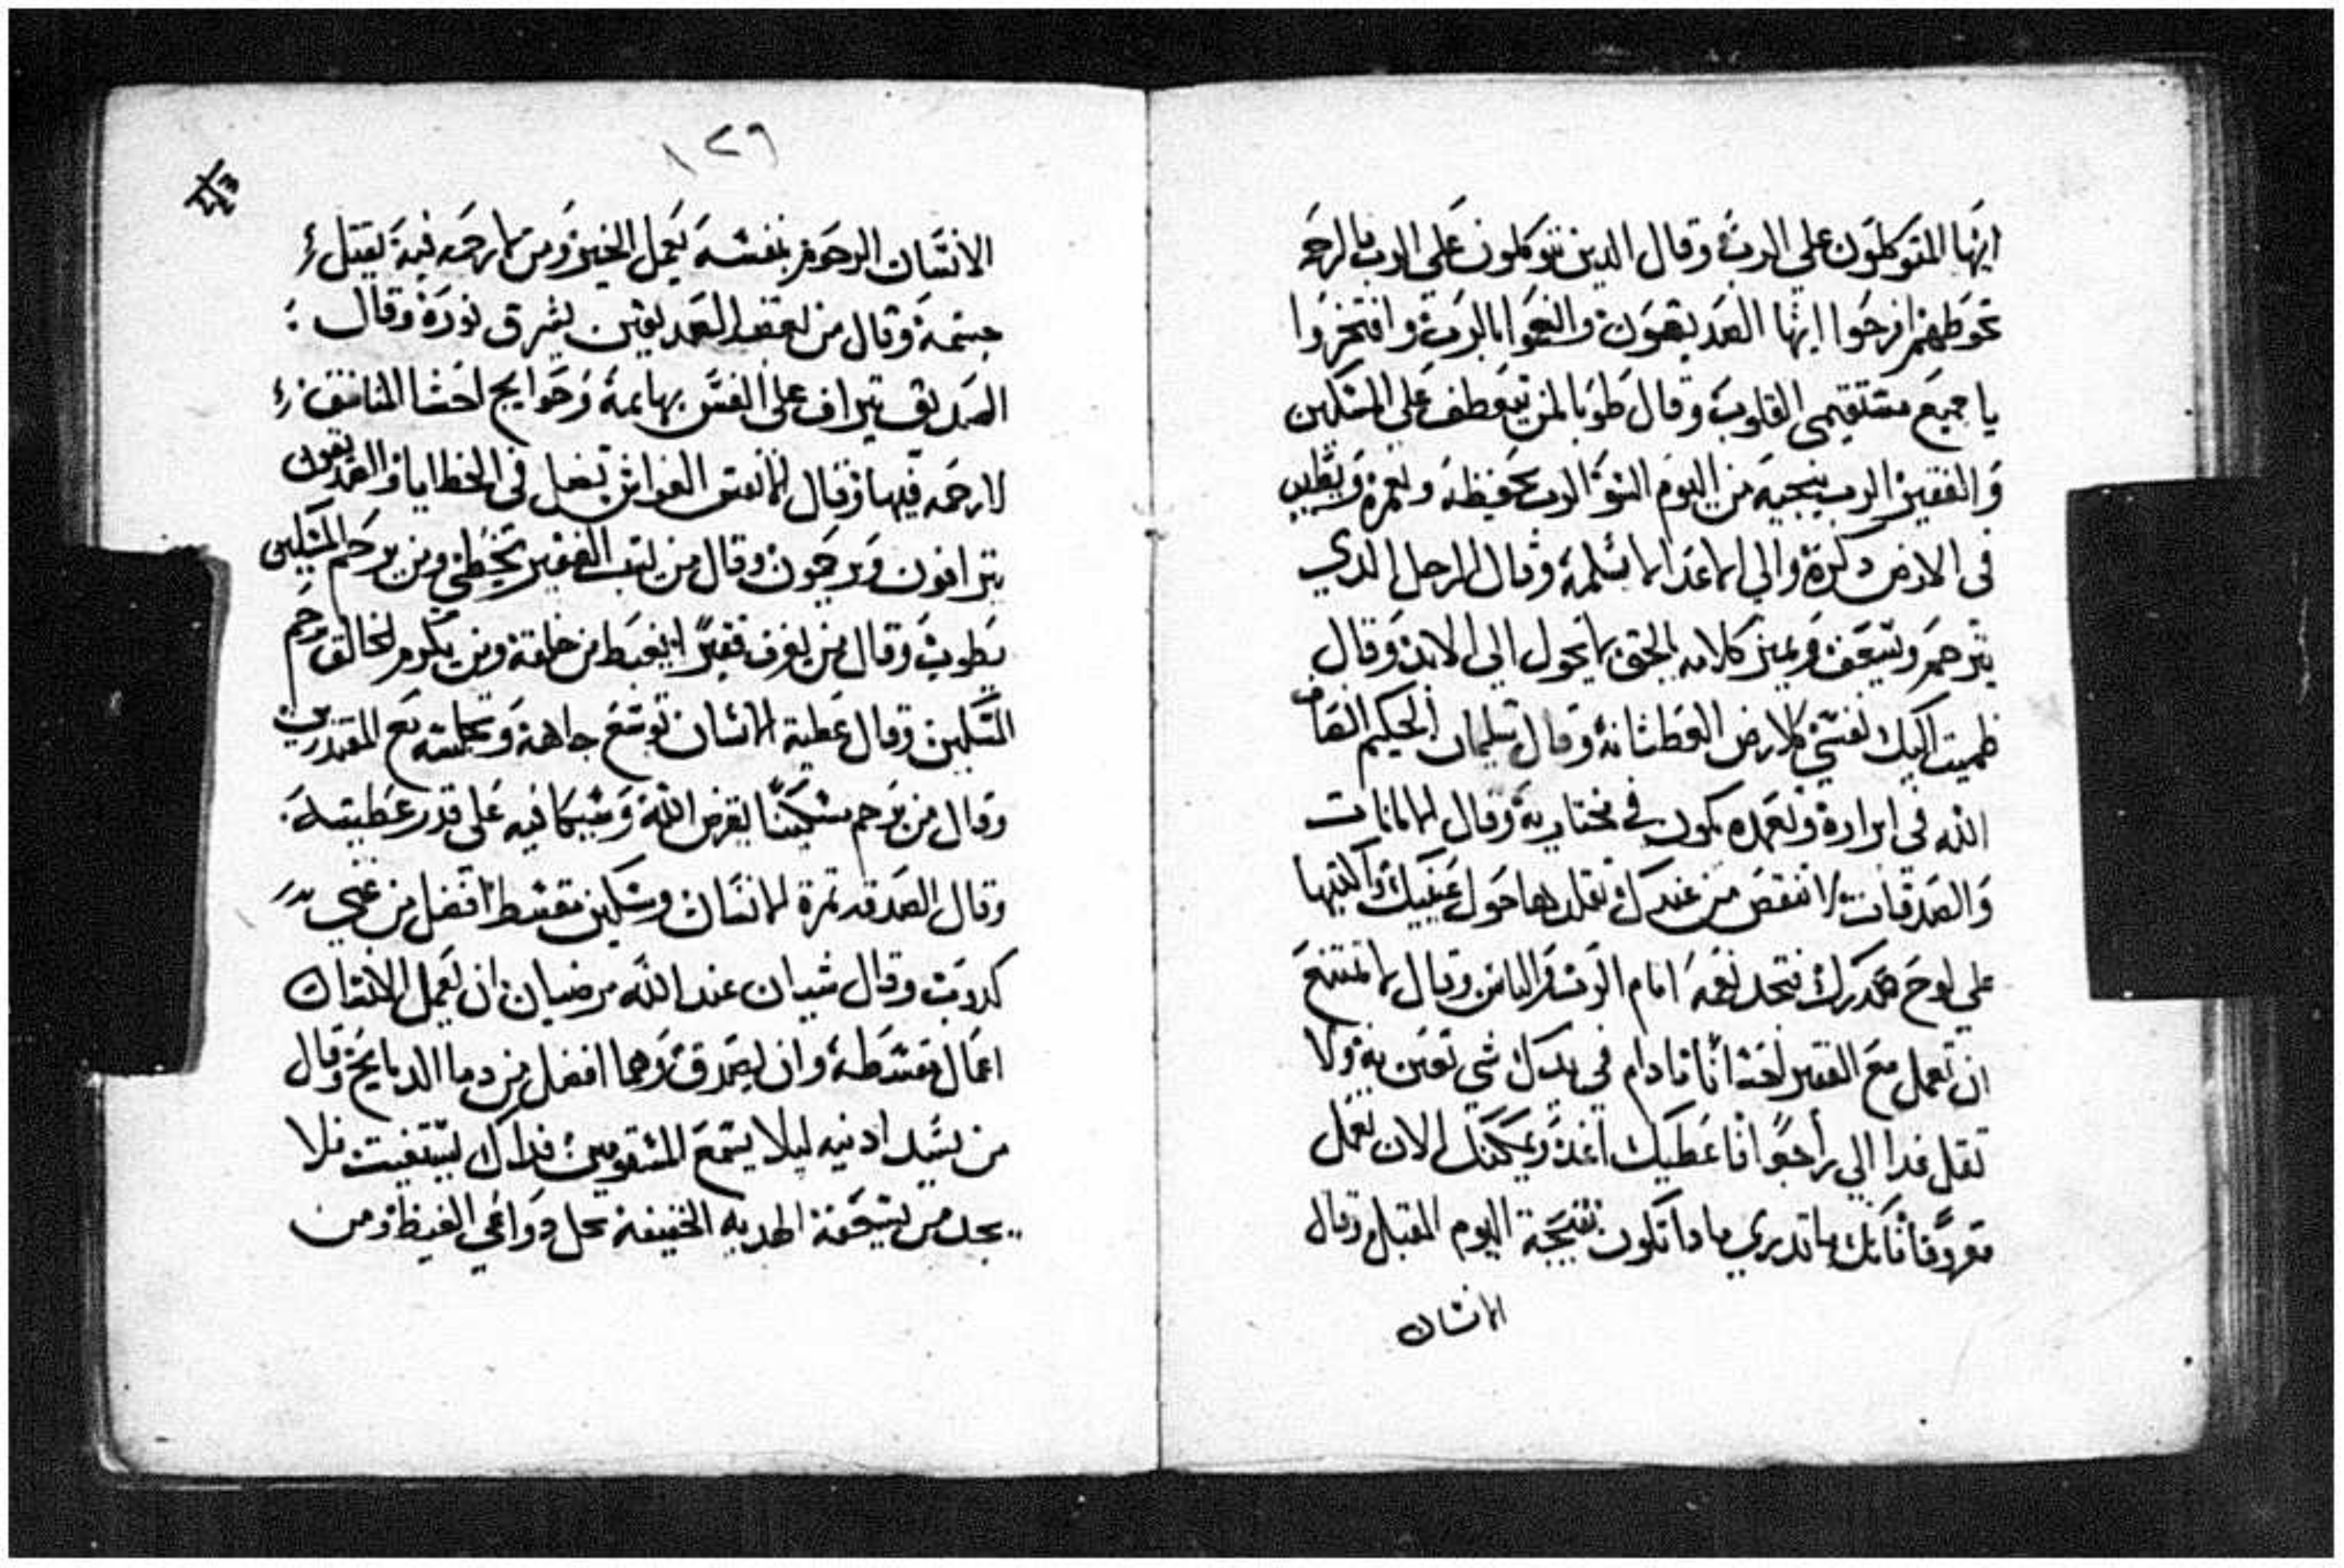 ايها المتوكلون على الرب وقال الدين يتوكلون على الرب الرحمه
تحوطهم افرحوا ايها الصديقون وانعموا بالرب وافتخروا
يا جميع مستقيمى القلوب وقال طوبا لمن يتعطف على المسكين
والفقير الرب ينجيه من اليوم السو الرب يحفظه ويعمره ويطيب
فى الارض دكره والى اعدايه لا يسلمه وقال الرجل الدي
يترحم ويسعف ويميز كلامه بالحق لا يحول الى الابد وقال
ظميت اليك نفسي كالارض العطشانه وقال سليمان الحكيم القاضى
الله في ايراده وتعمده يكون في مختاريه وقال الامانات
والصدقات لا تنقص من عندك تقلدها حول عنقيك واكتبها
علي لوح صدرك فتجد نعمه امام الرب والناس وقال لا تمتنع
ان تعمل مع الفقير احسانا مادام في يدك شي تعين به ولا
تقل غدا الي راجعا فاعطيك اغد ويمكنك الان تعمل
معروفا فانك ما تدري مادا تكون نتيجة اليوم المقبل وقال
الانسان
١٢٦
الانسان الرحوم بنفسه يعمل الخير ومن لا رحمه فيه يقتل
جسمه وقال من يعتقد الصديقين يشرق نوره وقال
الصديق يتراف على انفس بهايمه وحوايج احشا المنافقين
لا رحمه فيها وقال الانفس الغواش تضل فى الخطايا والصديقون
يترافون ويرحمون وقال من يسب الفقير يخطي ومن يرحم المسكين
يطوب وقال من يقرف فقيرا يغيظ من خلقه ومن يكرم الخالق يرحم
المسكين وقال عطية الانسان توسع جاهه وتجلسه مع المقتدرين
وقال من يرحم مسكينا يقرض الله وسيكافيه على قدر عطيته
وقال الصدقه ثمرة للانسان ومسكين مقسط افضل من غني
كدوب وقال شيان عند الله مرضيان ان يعمل الانسان
اعمال مقسطه وان يصدق وهما افضل من دما الدبايح وقال
من يسد ادنيه ليلا يسمع المستقومين فداك يستغيت فلا
يجد من يستجيب له الهديه الخفيفه تحل دواعي الغيظ ومن